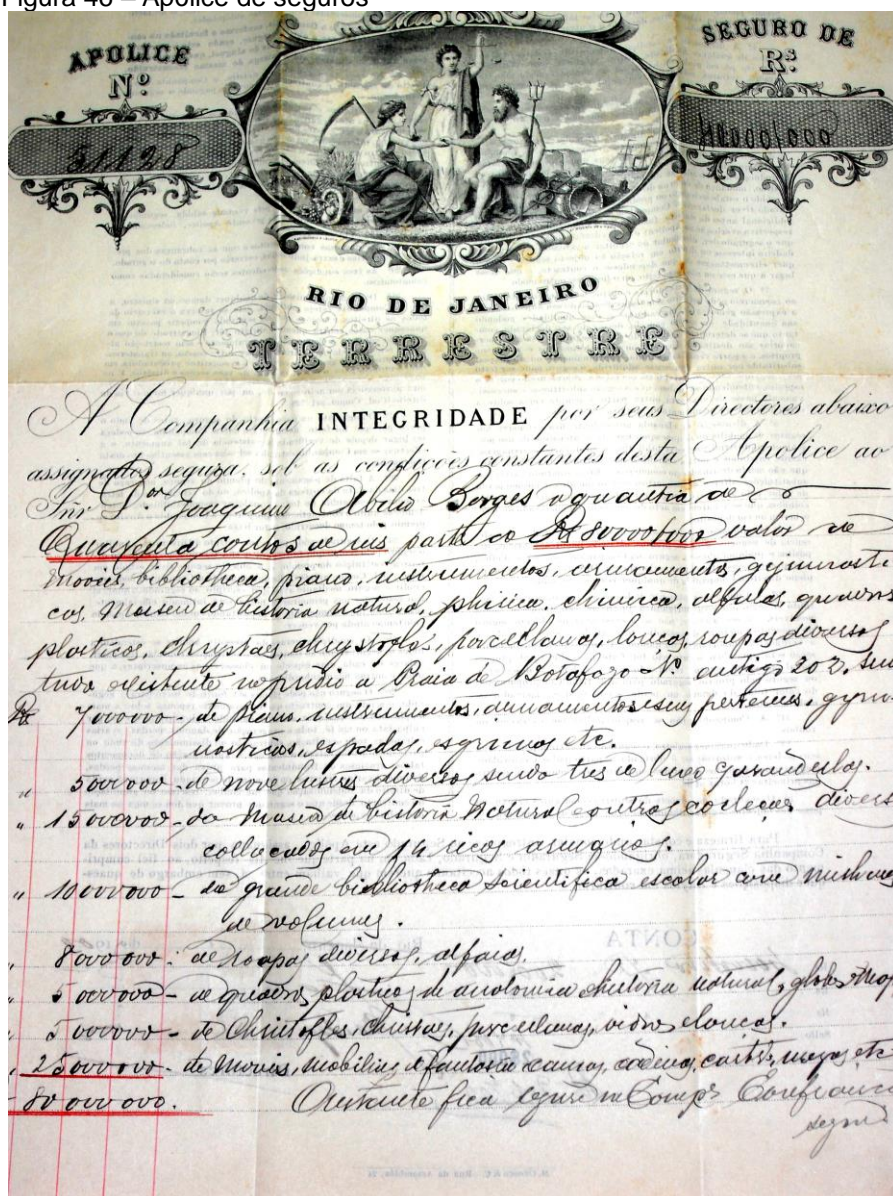 Figura 46 – Apólice de seguros
APOLICE
Nº
51128
SEGURO DE
Rs
40000/000
RIO DE JANEIRO
TERRESTRE
A Companhia INTEGRIDADE por seus Directores abaixo
assignados segura, sob as condições constantes desta Apolice ao
Snr Dor Joaquim Abilio Borges a quantia de
Quarenta contos de reis parte do Rs 80000/000 valor de
moveis, bibliotheca, piano, instrumentos, armamentos, gymnasti
cos, Museu de historia natural, phisica, chimica, alfaias, quadros
plasticos, chrystaes, chrystofles, porcellanas, louças, roupas diversas
tudo existente no predio a Praia de Botafogo Nº antigo 202. Sen
Rs 7000000 - de piano, instrumentos, armamentos e seus pertences, gym
nasticos, espadas, esgrimas etc.
" 5000000 - de nove lustres diversos sendo tres de luxo
" 15000000 - do Museu de historia Natural e outras coleções divers
collocados em 14 ricos armarios.
" 10000000 - da grande bibliotheca scientifica escolar com milhares
de volumes.
" 8000000 - de roupas diversas, alfaias.
" 5000000 - de quadros plasticos de anatomia e historia natural, globos
" 5000000 - de Christofles, porcelanas, vidros e louças.
" 25000000 - de moveis, mobilias de fantasia camas, mezas etc
80000000. fica seguro na Compa Confiança